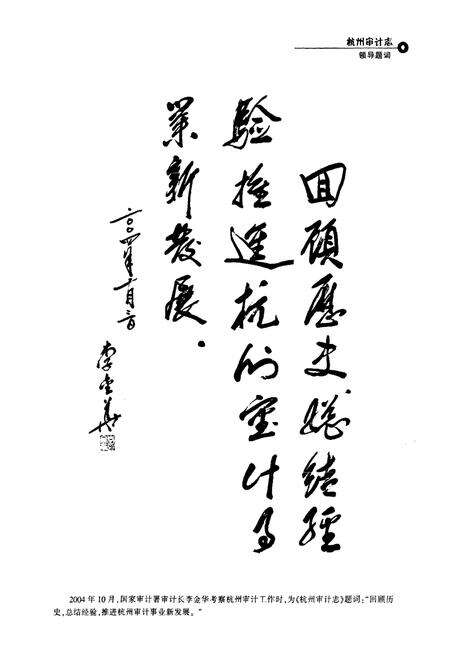 杭州审计志
领导题词
回顾历史总结经
验推進杭州審计事
業新發展.
二〇〇四年十月二日
李金華
2004年10月,国家审计署审计长李金华考察杭州审计工作时,为《杭州审计志》题词:“回顾历
史,总结经验,推进杭州审计事业新发展。”